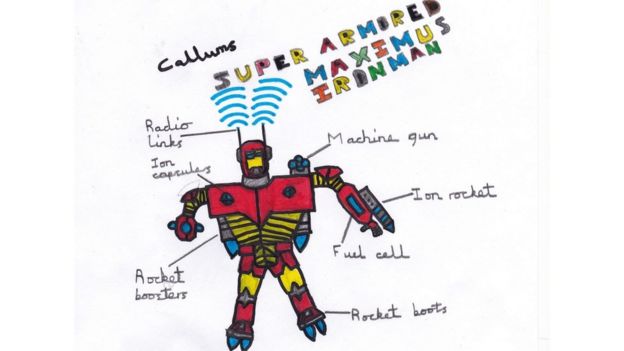 Callums
SUPER ARMORED
MAXIMUS
IRONMAN
Radio
links
Machine gun
Ion
capsules
Ion rocket
Fuel cell
Rocket
boosters
Rocket boots